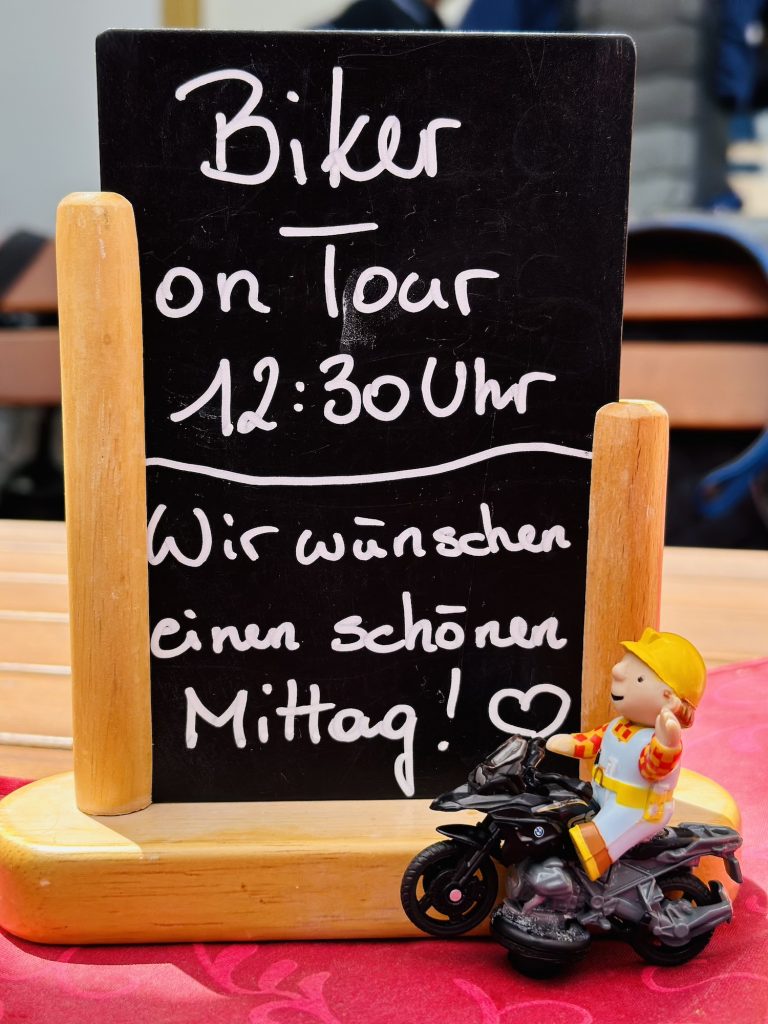 Biker
on Tour
12:30 Uhr
Wir wünschen
einen schönen
Mittag! ♡